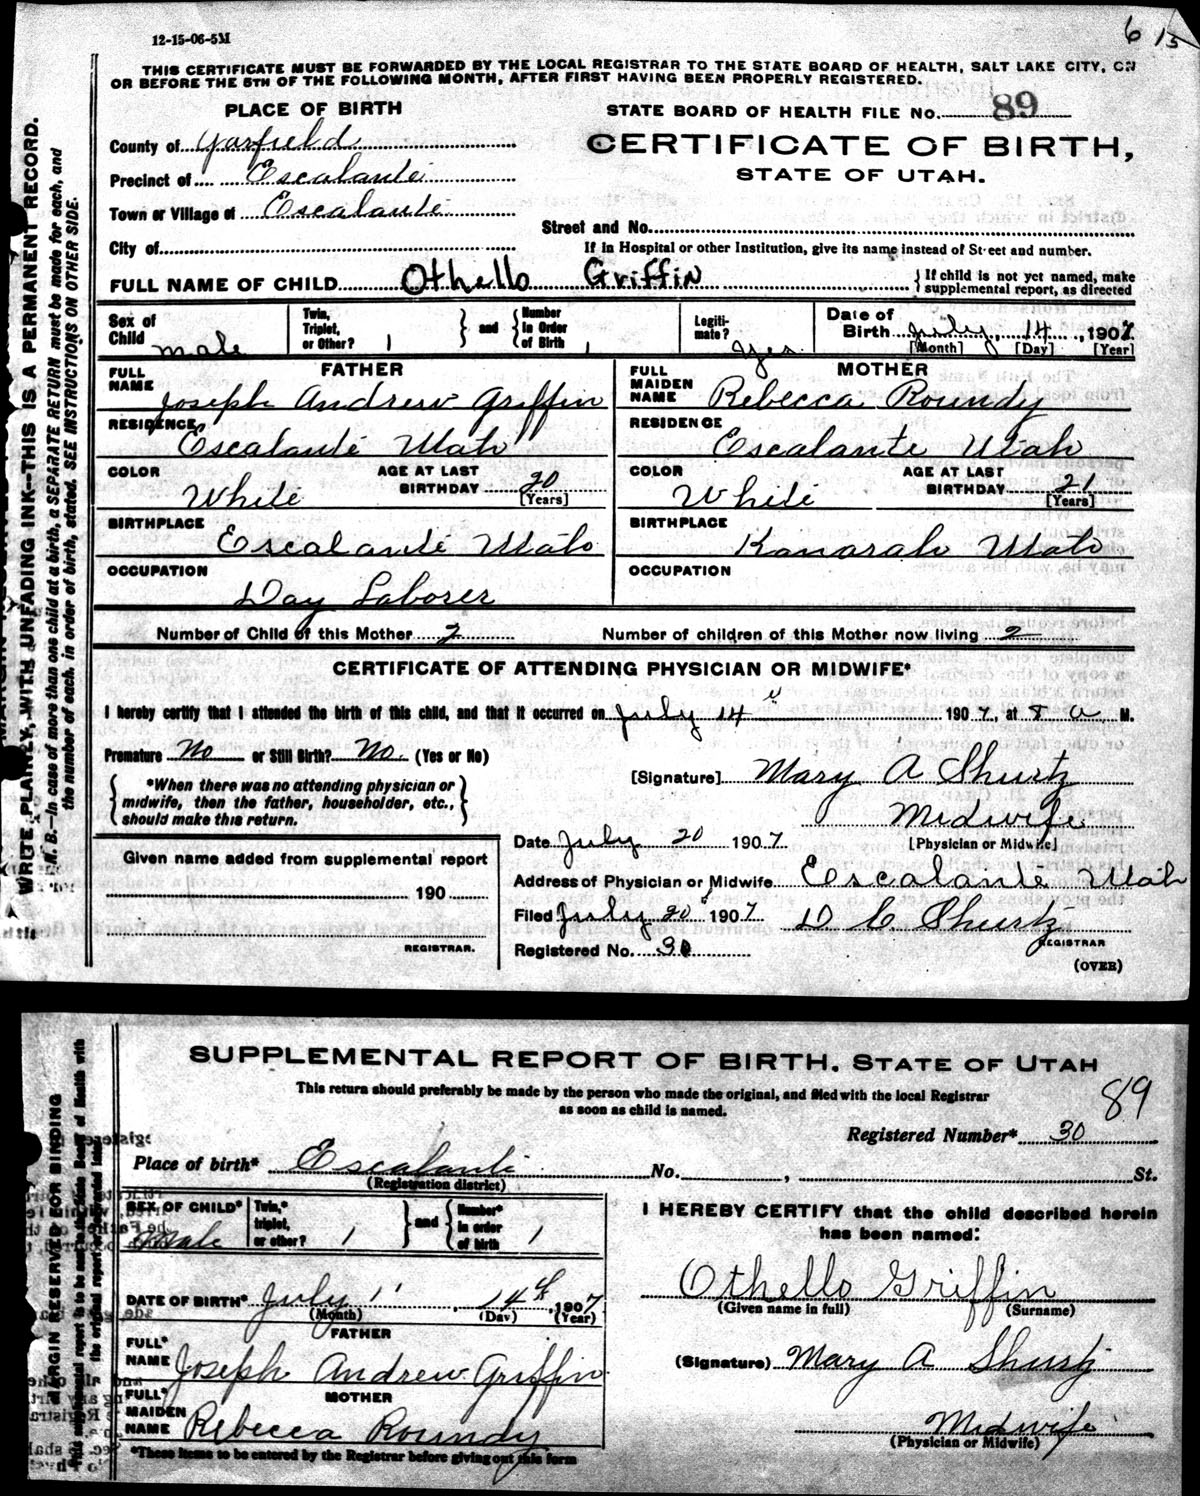 12-15-06-5M
6 15
THIS CERTIFICATE MUST BE FORWARDED BY THE LOCAL REGISTRAR TO THE STATE BOARD OF HEALTH, SALT LAKE CITY, ON
OR BEFORE THE 5TH OF THE FOLLOWING MONTH, AFTER FIRST HAVING BEEN PROPERLY REGISTERED.
PLACE OF BIRTH
STATE BOARD OF HEALTH FILE NO. 89
County of Garfield
CERTIFICATE OF BIRTH,
Precinct of Escalante
STATE OF UTAH.
Town or Village of Escalante
Street and No.
City of
If in Hospital or other Institution, give its name instead of Street and number.
FULL NAME OF CHILD Othello Griffin
{If child is not yet named, make
supplemental report, as directed
Sex of Child male
Twin, Triplet, or Other? 1
and
Number in Order of Birth 1
Legiti-mate? Yes
Date of Birth July 14, 1907
[Month] [Day] [Year]
FATHER
FULL NAME Joseph Andrew Griffin
RESIDENCE Escalante Utah
COLOR White
AGE AT LAST BIRTHDAY 20 [Years]
BIRTHPLACE Escalante Utah
OCCUPATION Day Laborer
MOTHER
FULL MAIDEN NAME Rebecca Roundy
RESIDENCE Escalante Utah
COLOR White
AGE AT LAST BIRTHDAY 21 [Years]
BIRTHPLACE Kanarah Utah
OCCUPATION
Number of Child of this Mother 2 Number of children of this Mother now living 2
CERTIFICATE OF ATTENDING PHYSICIAN OR MIDWIFE*
I hereby certify that I attended the birth of this child, and that it occurred on July 14 1907, at 8 a M.
Premature No or Still Birth? No. (Yes or No)
{*When there was no attending physician or
midwife, then the father, householder, etc.,
should make this return.}
[Signature] Mary A Shurtz
Midwife
[Physician or Midwife]
Date July 20 1907
Address of Physician or Midwife Escalante Utah
Filed July 20 1907 D C Shurtz
REGISTRAR
Registered No. 30
(OVER)
Given name added from supplemental report
190
REGISTRAR.
WRITE PLAINLY, WITH UNFADING INK--THIS IS A PERMANENT RECORD.
N. B.--In case of more than one child at a birth, a SEPARATE RETURN must be made for each, and
the number of each, in order of birth, stated. SEE INSTRUCTIONS ON OTHER SIDE.
SUPPLEMENTAL REPORT OF BIRTH. STATE OF UTAH
This return should preferably be made by the person who made the original, and filed with the local Registrar
as soon as child is named.
89
Registered Number* 30
Place of birth* Escalante No. , St.
(Registration district)
SEX OF CHILD* Male
Twin,* triplet, or other? 1
and
Number* in order of birth 1
DATE OF BIRTH* July 14th, 1907
(Month) (Day) (Year)
FATHER
FULL* NAME Joseph Andrew Griffin
MOTHER
FULL* MAIDEN NAME Rebecca Roundy
*These items to be entered by the Registrar before giving out this form
I HEREBY CERTIFY that the child described herein
has been named:
Othello Griffin
(Given name in full) (Surname)
(Signature) Mary A Shurtz
Midwife
(Physician or Midwife)
MARGIN RESERVED FOR BINDING